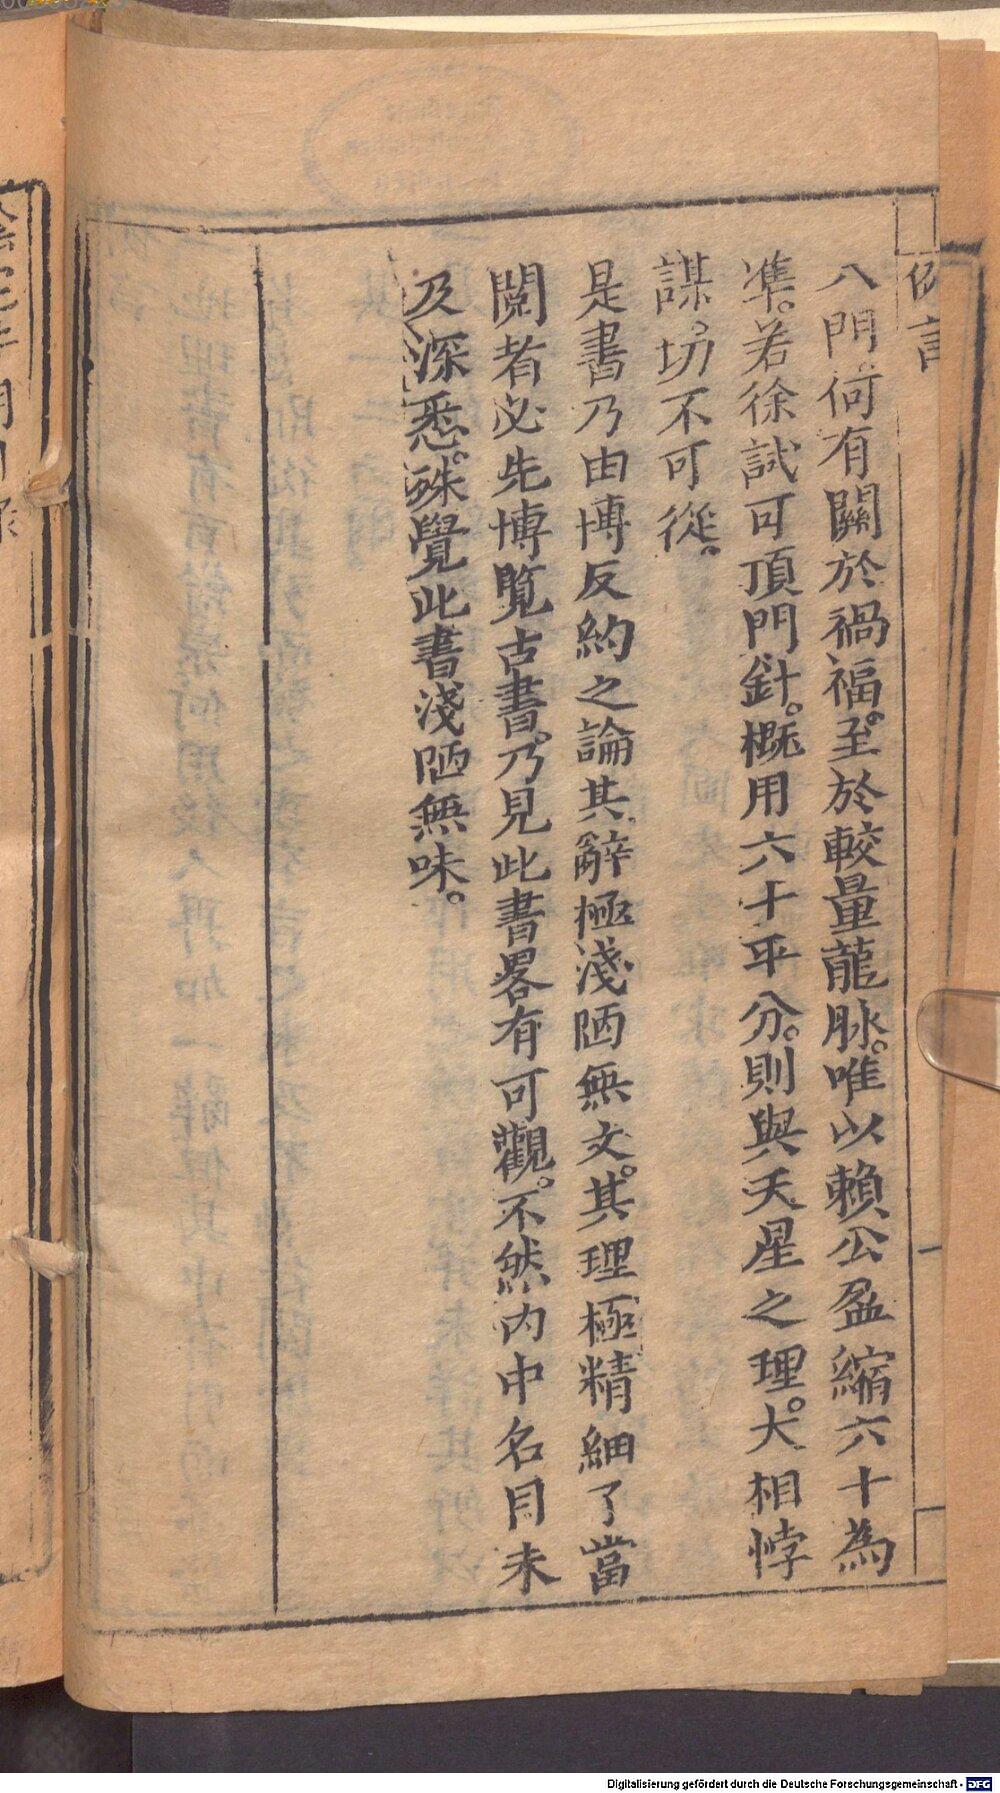 例言
八門何有關於禍福。至於較量龍脉。唯以賴公盈縮六十為
凖。若徐試可頂門針。槪用六十平分。則與天星之理。大相悖
謀。切不可從。
是書乃由博反約之論其辭極淺陋無文。其理極精細了當
閱者必先博覧古書。乃見此書畧有可觀。不然內中名目未
及深悉。殊覺此書淺陋無味。
Digitalisierung gefördert durch die Deutsche Forschungsgemeinschaft - DFG